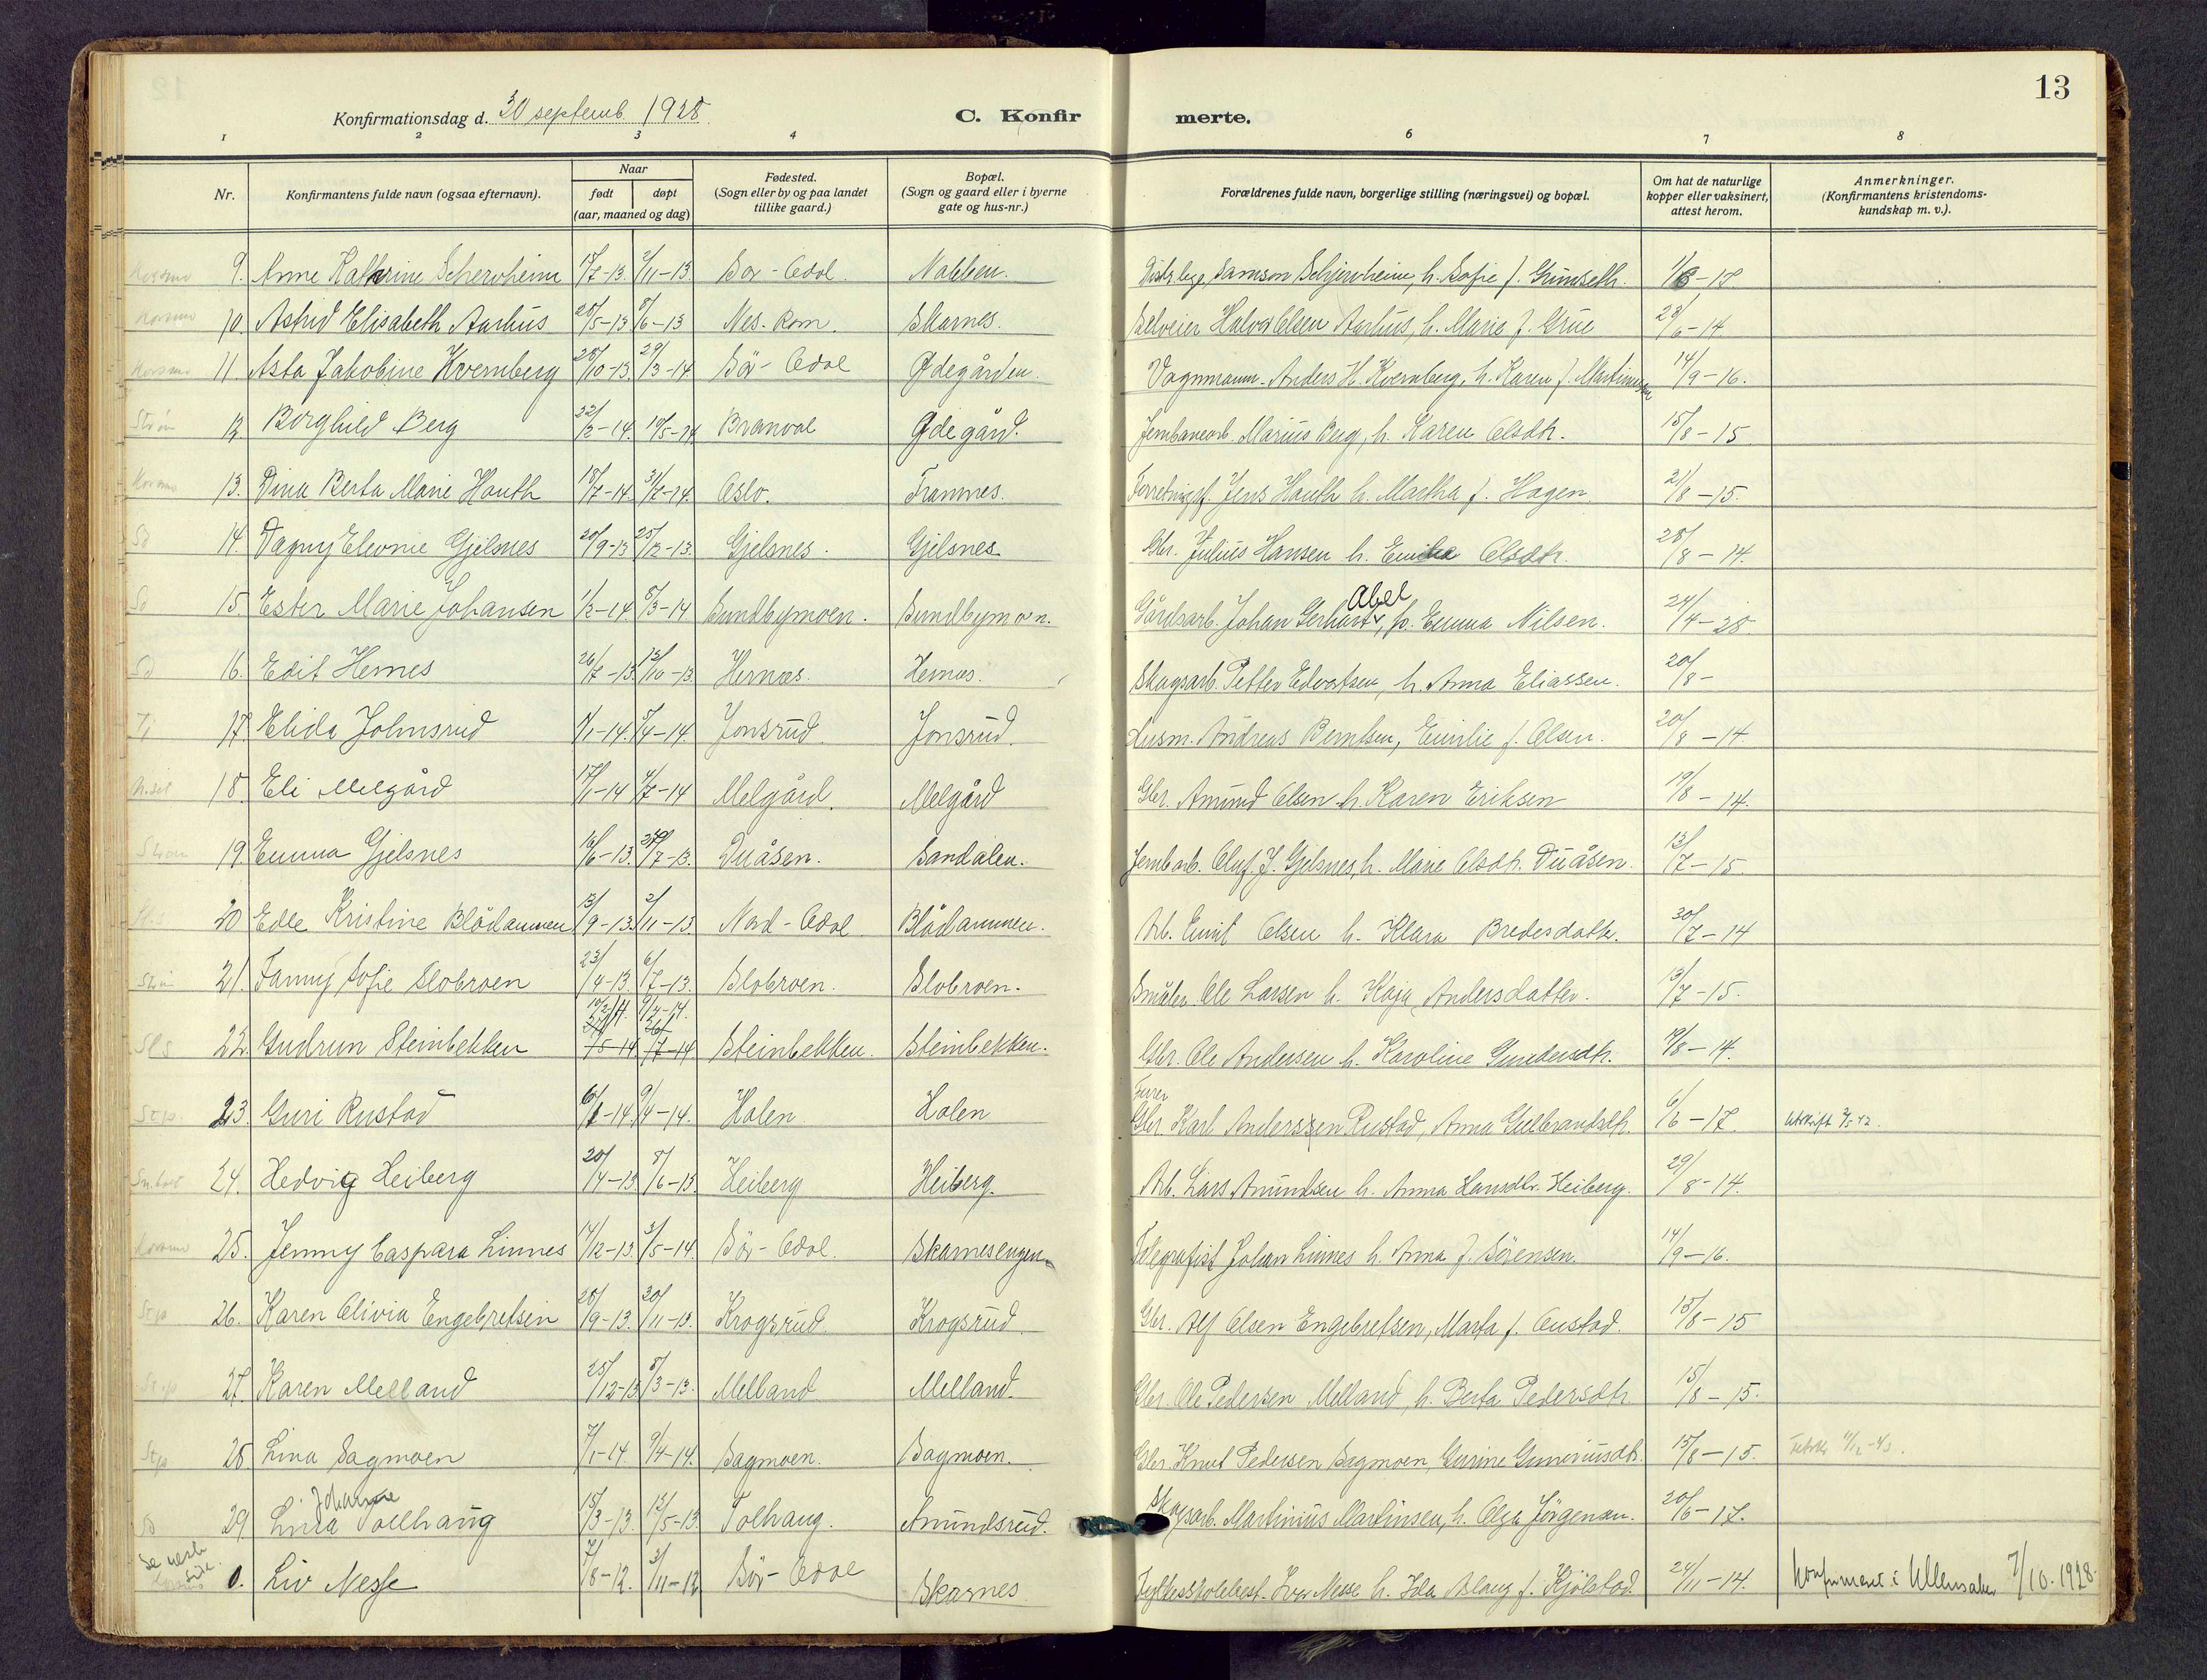 13
Konfirmationsdag d. 30 septemb. 1928.
C. Konfirmerte.
1 2 3 4 6 7 8
Nr.
Konfirmantens fulde navn (ogsaa efternavn).
Naar
født
døpt
(aar, maaned og dag)
Fødested.
(Sogn eller by og paa landet
tillike gaard.)
Bopæl.
(Sogn og gaard eller i byerne
gate og hus-nr.)
Forældrenes fulde navn, borgerlige stilling (næringsvei) og bopæl.
Om hat de naturlige
kopper eller vaksinert,
attest herom.
Anmerkninger.
(Konfirmantens kristendoms-
kundskap m. v.).
Korsmo 9. Anne Kathrine Schervheim 18/7-13. 2/11-13. Sør-Odal. Nabben. Distr.lege Samson Schjervheim, h. Sofie f. Grimseth. 1/6-17
Korsmo 10. Astrid Elisabeth Aarhus 28/5-13 8/6-13 Nes. Rom. Skarnes. Selveier Halvor Olsen Aarhus, h. Marie f. Grue 29/6-14
Korsmo 11. Asta Jakobine Kvernberg 28/10-13. 29/3-14. Sør-Odal Ødegården. Vognmann Anders H. Kvernberg, h. Karen f. Martinsen 14/9-16.
Strøm 12. Borghild Berg 22/2-14. 10/5-14 Branval Ødegård. Jernbanearb. Marius Berg, h. Karen Olsdtr. 15/8-15.
Korsmo 13. Dina Berta Marie Hauth 18/7-14. 31/7-14. Oslo. Framnes. Forretningsf. Jens Hauth h. Martha f. Hagen 21/8-15.
14. Dagny Eleonie Gjelsnes 20/9-13 25/12-13. Gjelsnes. Gjelsnes Gbr. Julius Hansen h. Emilie Olsdtr. 28/8-14.
15. Ester Marie Johansen 1/2-14. 8/3-14 Sundbymoen. Sundbymoen. Gårdsarb. Johan Gerhart Abel, h. Emma Nilsen. 24/4-28
16. Edit Hernes 26/7-13. 12/10-13. Hernæs. Hernæs. Skogsarb. Petter Edvartsen, h. Anna Eliassen. 20/8-
17. Elida Johnsrud 1/1-14. 5/4-14 Jonsrud. Jonsrud. Husm. Andreas Berntsen, Emilie f. Olsen. 20/8-14.
18. Eli Melgård 17/1-14 4/7-14 Melgård. Melgård Gbr. Amund Olsen h. Karen Eriksen 19/8-14.
Strøm 19. Emma Gjelsnes 16/6-13. 27/7-13. Duåsen. Sandalen. Jernb.arb. Oluf J. Gjelsnes, h. Marie Olsdtr. Duåsen. 12/7-15
20 Edle Kristine Blådammen 13/9-13. 2/11-13. Nord-Odal Blådammen. Arb. Emil Olsen h. Klara Bredesdatter. 30/7-14
Strøm 21. Fanny Sofie Slobroen 23/4-13. 6/7-13. Slobroen. Slobroen. Småbr. Ole Larsen h. Kaja Andersdatter. 13/7-15.
22. Gudrun Steinbekken /5-14 26/7-14 Steinbekken. Steinbekken. Gbr. Ole Andersen h. Karoline Gundersdtr. 19/8-14.
23. Guri Rustad 6/1-14. 9/4-14. Holen Holen Furer Gbr. Karl Anderssen Rustad, Anna Gulbrandsdtr. 6/2-17. Utskrift
24. Hedvig Heiberg 20/4-13 8/6-13. Heiberg Heiberg. Arb. Lars Amundsen h. Anna Hansdtr. Heiberg. 29/8-14.
Korsmo 25. Jenny Caspara Linnes 14/12-13. 3/5-14. Sør-Odal. Skarnesengen. Telegrafist Johan Linnes h. Anna f. Sørensen. 14/9-16.
26. Karen Olivia Engebretsen 28/9-13. 20/11-13. Krogsrud. Krogsrud. Gbr. Alf Olsen Engebretsen, Marta f. Austad. 15/8-15
27. Karen Melland 28/12-13. 8/3-13. Melland Melland. Gbr. Ole Pedersen Melland, h. Berta Pedersdtr. 15/8-15.
28. Lina Sagmoen 7/1-14. 9/4-14. Sagmoen. Sagmoen. Gbr. Knut Pedersen Sagmoen, Gurine Guneriusdtr. 15/8-15.
29 Lina Johanne Tollhaug 15/3-13. 12/5-13 Tolhaug. Amundsrud. Skogsarb. Martinius Martinsen, h. Olga Jørgensen. 20/6-17.
Se neste side. 0. Liv Nesse 7/8-12. 3/11-12 Sør-Odal Skarnes Fylkesskolebest. Iver Nesse h. Ida Aslaug f. Kjølstad. 24/11-14. Konfirmert i Ullensaker 7/10. 1928.